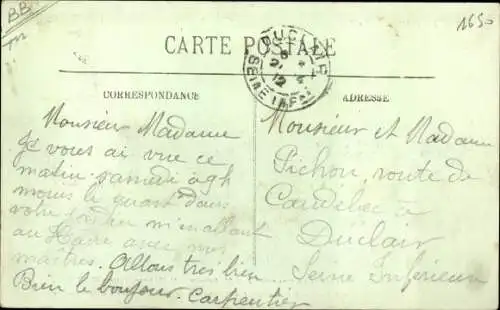 BB
1650
CARTE POSTALE
DUCLAIR
SEINE INFRE
CORRESPONDANCE
ADRESSE
Monsieur Madame
Je vous ai vue ce
matin samedi a 9h
moins le quart dans
votre m'en allant
au Havre avec mes
maîtres. Allons très bien
Bien le bonjour. Carpentier
Monsieur et Madame
Pichon, route de
Caudebec à
Duclair
Seine Inférieure